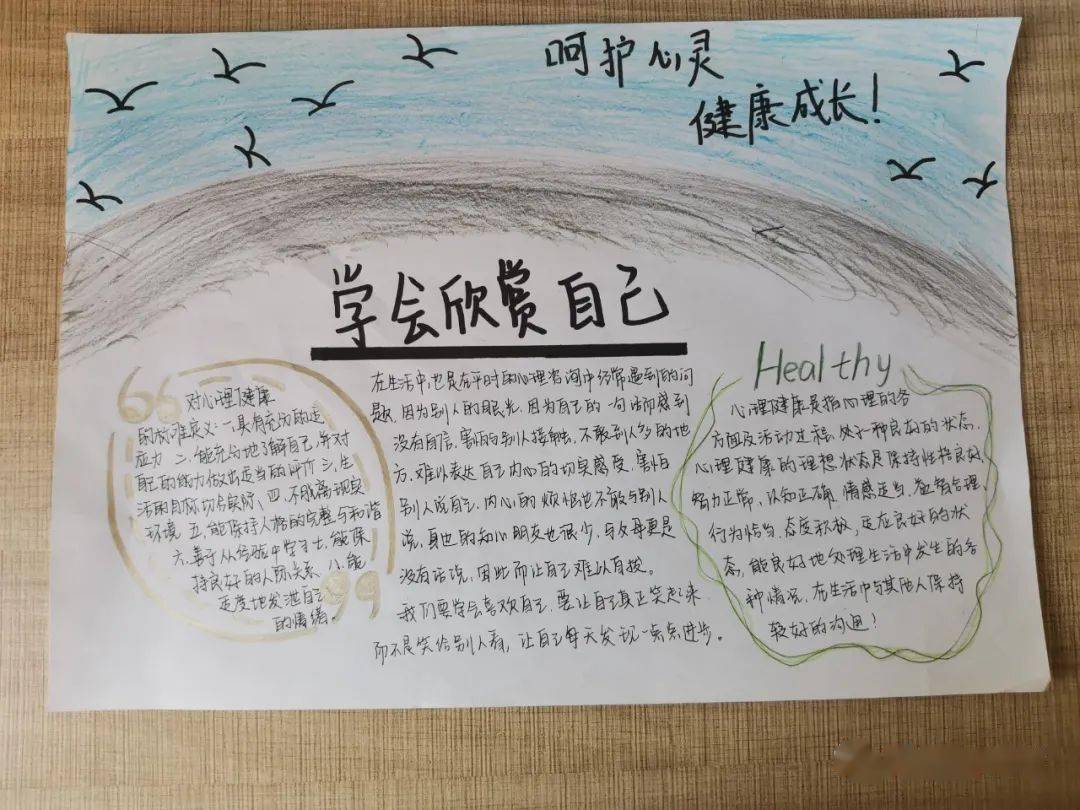 呵护心灵
健康成长!
学会欣赏自己
对心理健康
的标准定义:一、具有充分的适
应力 二、能充分地了解自己,并对
自己的能力做出适当的评价 三、生
活的目标切合实际、四、不脱离现实
环境 五、能保持人格的完整与和谐
六、善于从经验中学习 七、能保
持良好的人际关系 八、能
适度地发泄自己
的情绪。
在生活中,也是在平时的心理咨询中经常遇到的问
题,因为别人的眼光,因为自己的一句话而感到
没有自信,害怕和别人接触,不敢到人多的地
方、难以表达自己内心的切实感受,害怕
别人说自己,内心的烦恼也不敢与别人
说,身边的知心朋友也很少,与父母更是
没有话说,因此而让自己难以自拔。
我们要学会喜欢自己,要让自己真正笑起来
而不是笑给别人看,让自己每天发现一点点进步。
Healthy
心理健康是指心理的各
方面及活动过程处于一种良好的状态,
心理健康的理想状态是保持性格良好,
智力正常,认知正确,情感适当,合理,
行为恰当,态度积极,适应良好的状
态,能良好地处理生活中发生的各
种情况,在生活中与其他人保持
较好的沟通!